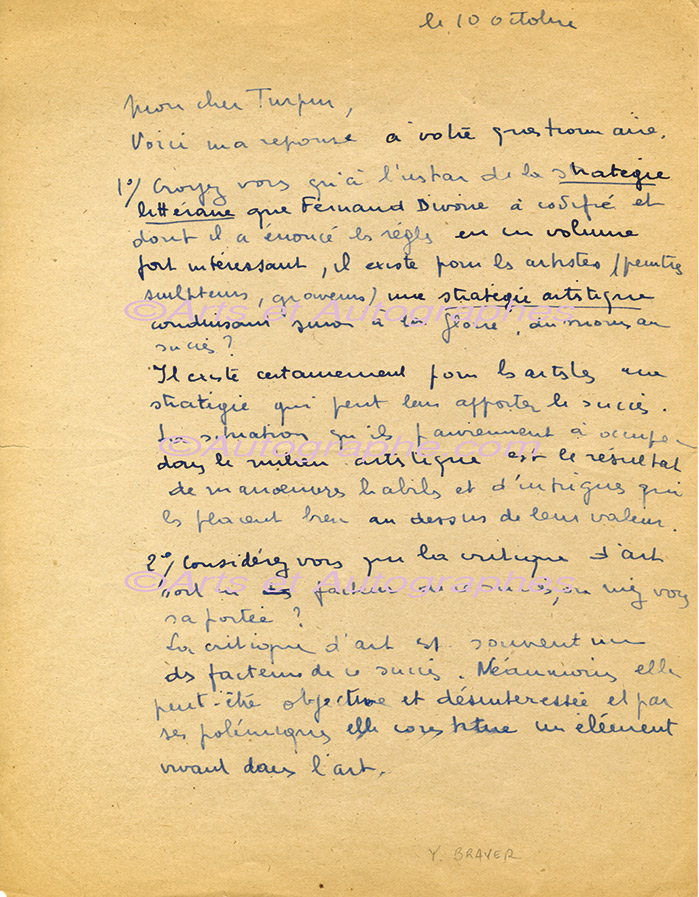 le 10 octobre
Mon cher Turpin,
Voici ma réponse à votre questionnaire.
1°/ Croyez vous qu'à l'instar de la stratégie
littéraire que Fernand Divoire à codifié et
dont il a énoncé les régles en un volume
fort intéressant, il existe pour les artistes (peintres
sculpteurs, graveurs) une stratégie artistique
©Arts et Autographes
conduisant sinon à la gloire, du moins au
succès?
Il existe certainement pour les artistes une
stratégie qui peut leur apporter le succès.
La situation qu'ils parviennent à occuper
©Autographe.com
dans le milieu artistique est le résultat
de manoeuvres habiles et d'intrigues qui
les placent bien au dessus de leur valeur.
2°/ Considérez vous que la critique d'art
©Arts et Autographes
soit un facteur de ce succès, ou niez vous
sa portée?
La critique d'art est souvent un
des facteurs de ce succès. Néanmoins elle
peut-être objective et désintéressée et par
ses polémiques elle constitue un élément
vivant dans l'art.
Y. BRAYER